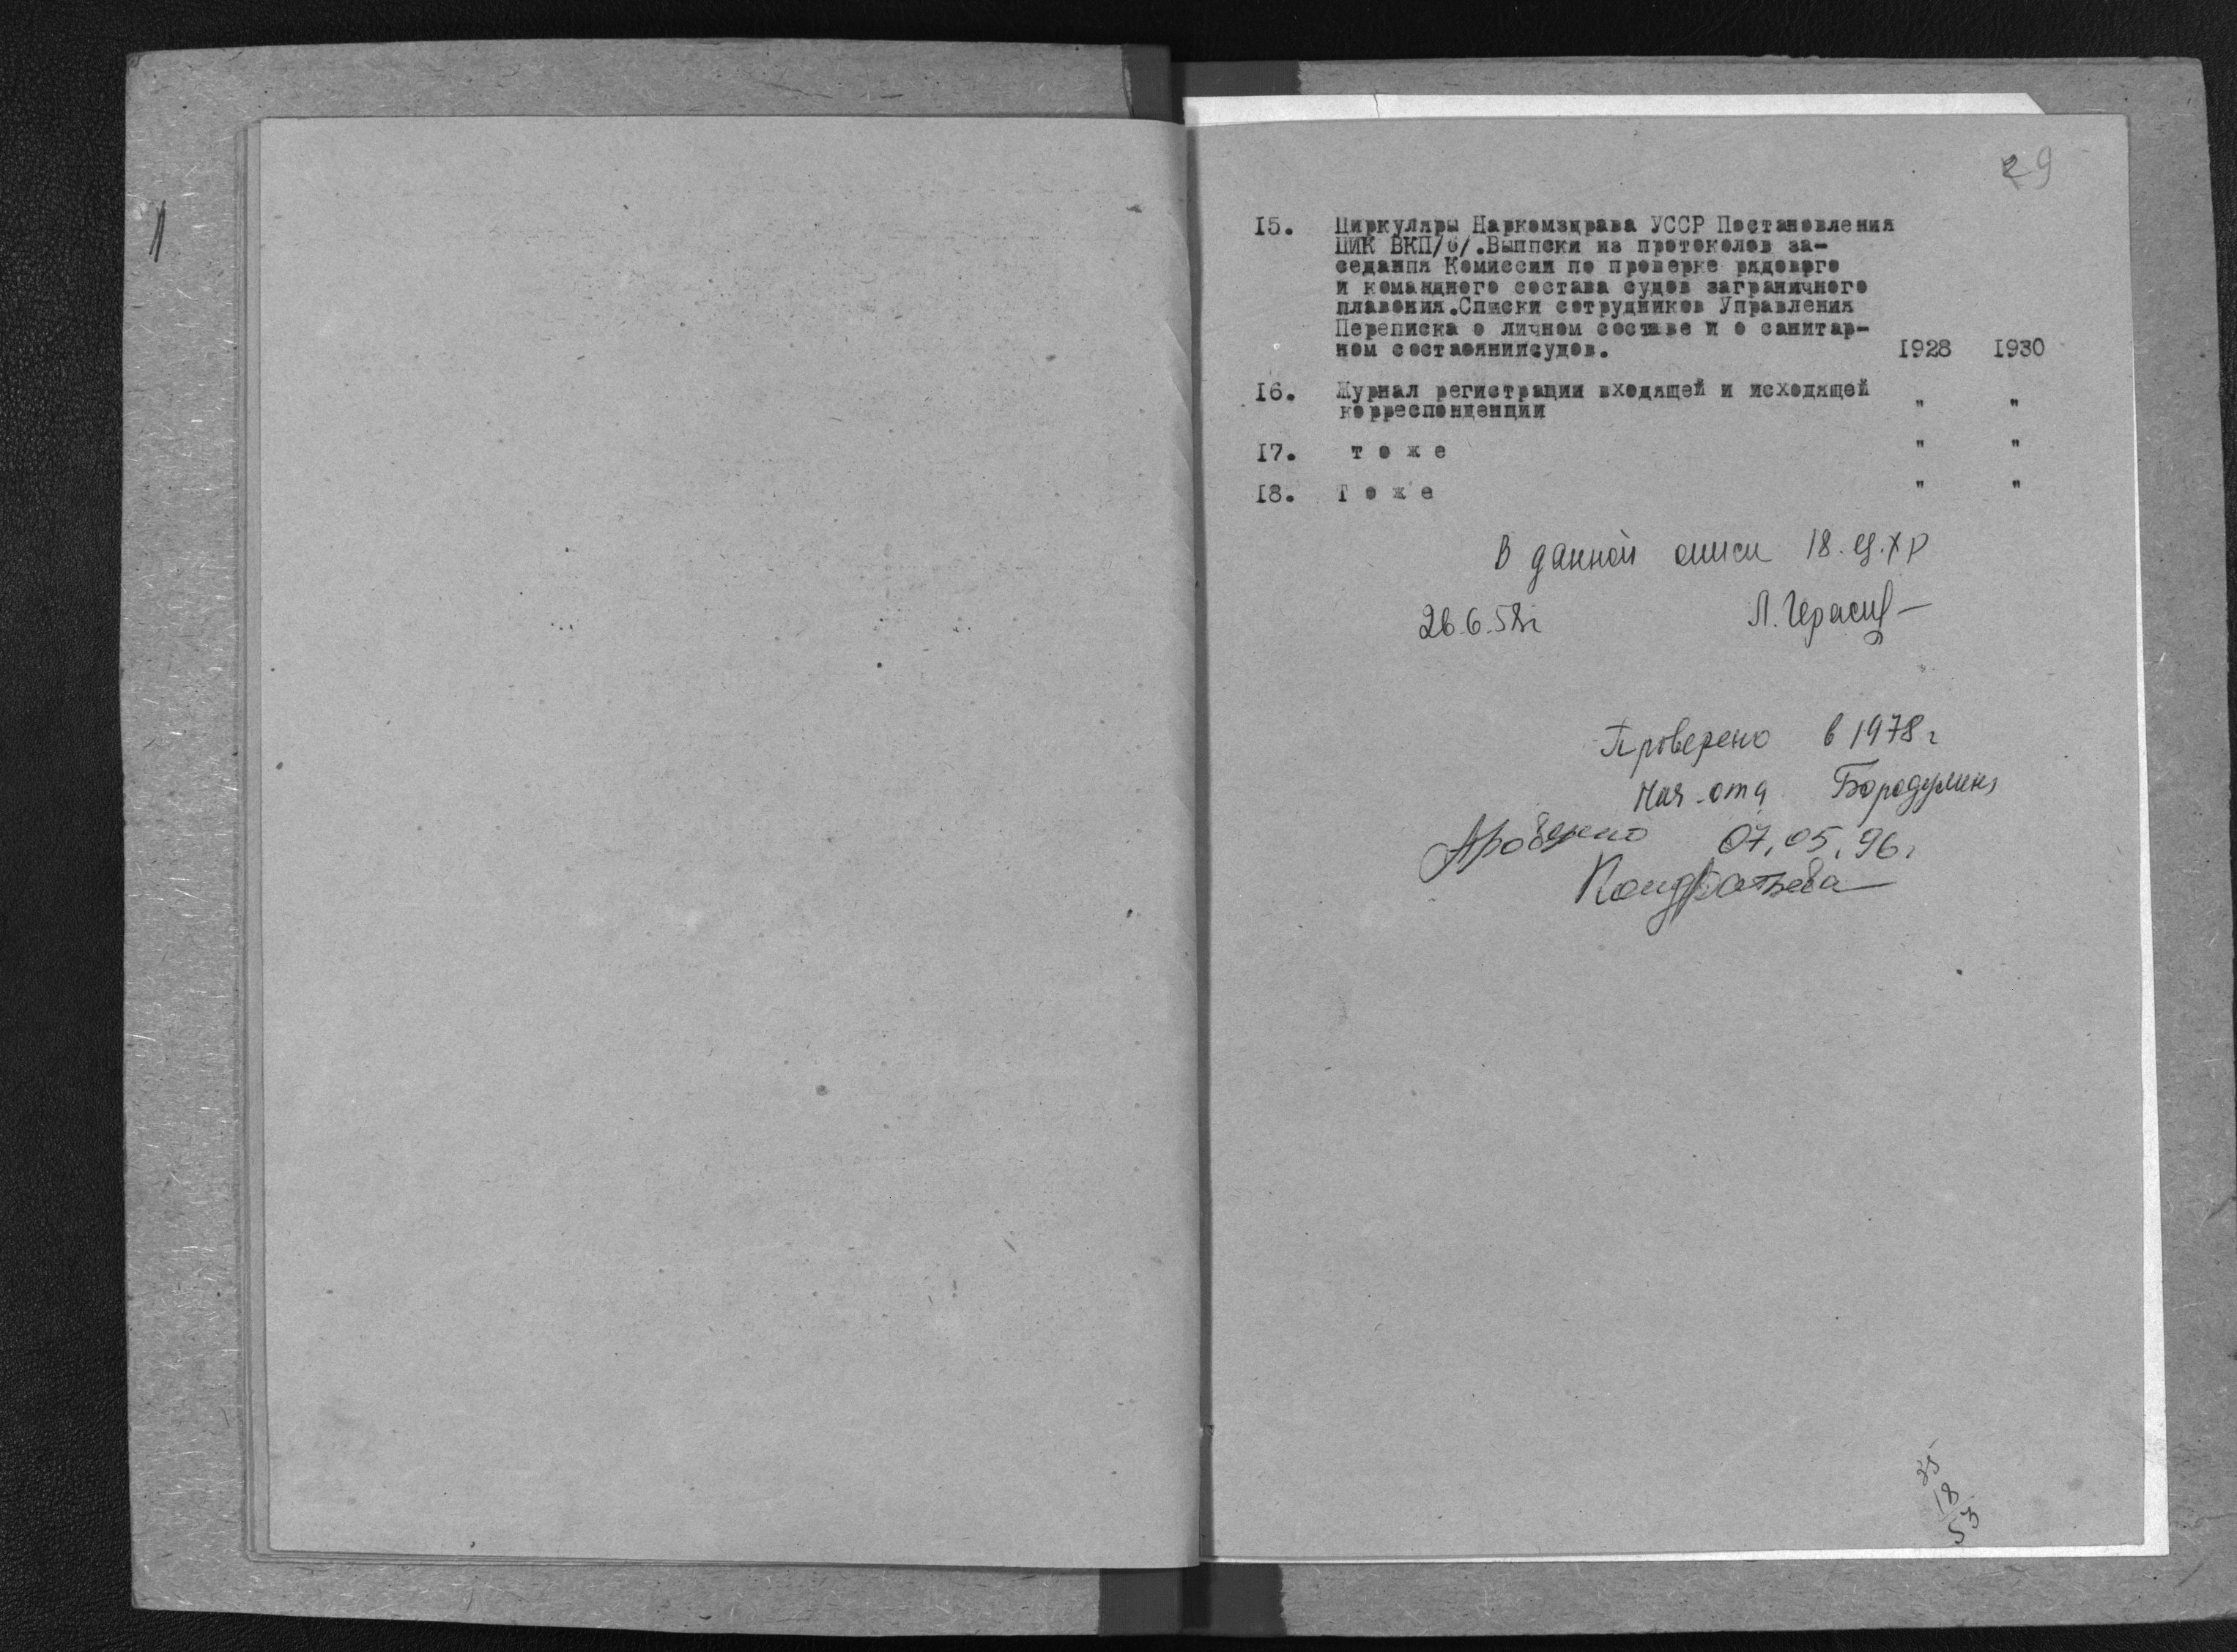 29
I5. Циркуляры Наркомздрава УССР Постановления
ЦИК ВКП/б/.Выписки из протоколов за-
седания Комиссии по проверке рядового
и командного состава судов заграничного
плавония.Списки сотрудников Управления
Переписка о личном составе и о санитар-
ном состаоянииисудов. I928 I930
I6. Журнал регистрации входящей и исходящей
корреспонденции " "
I7. т о ж е " "
I8. Т о ж е " "
В данной описи 18. ед. хр
26.6.58г Л. Герасим
Проверено в 1978 г
Нач. отд Бородулина
Проверено 07.05.96г
Кондратьева
35
18
53